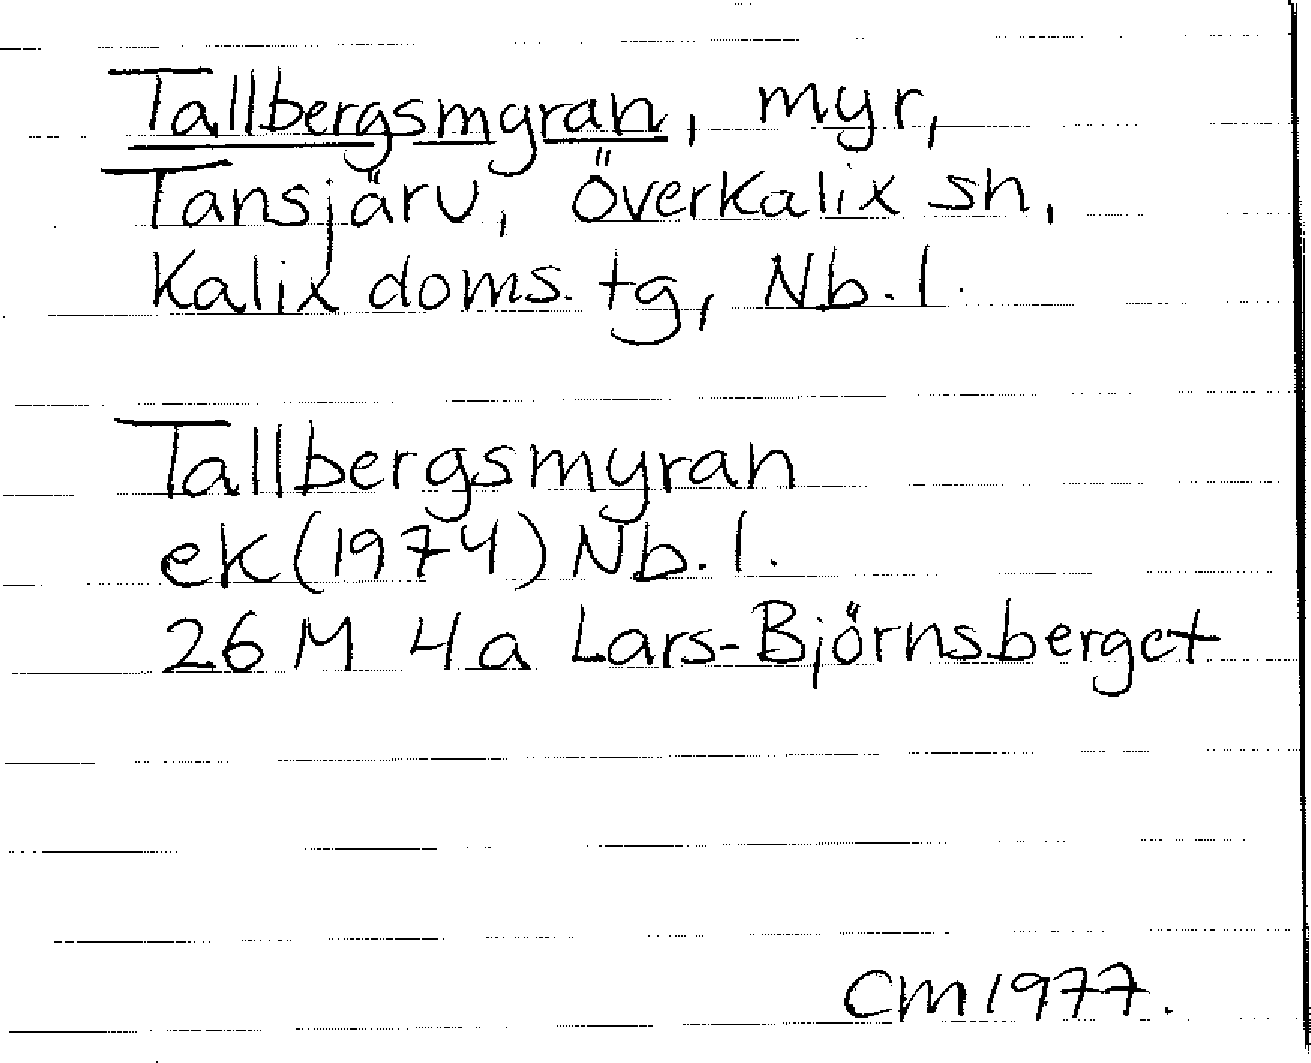 Tallbergsmyran, myr,
Tansjärv, Överkalix sn,
Kalix doms. tg, Nb. l.
Tallbergsmyran
ek (1974) Nb. l.
26 M 4a Lars-Björnsberget
CM 1977.